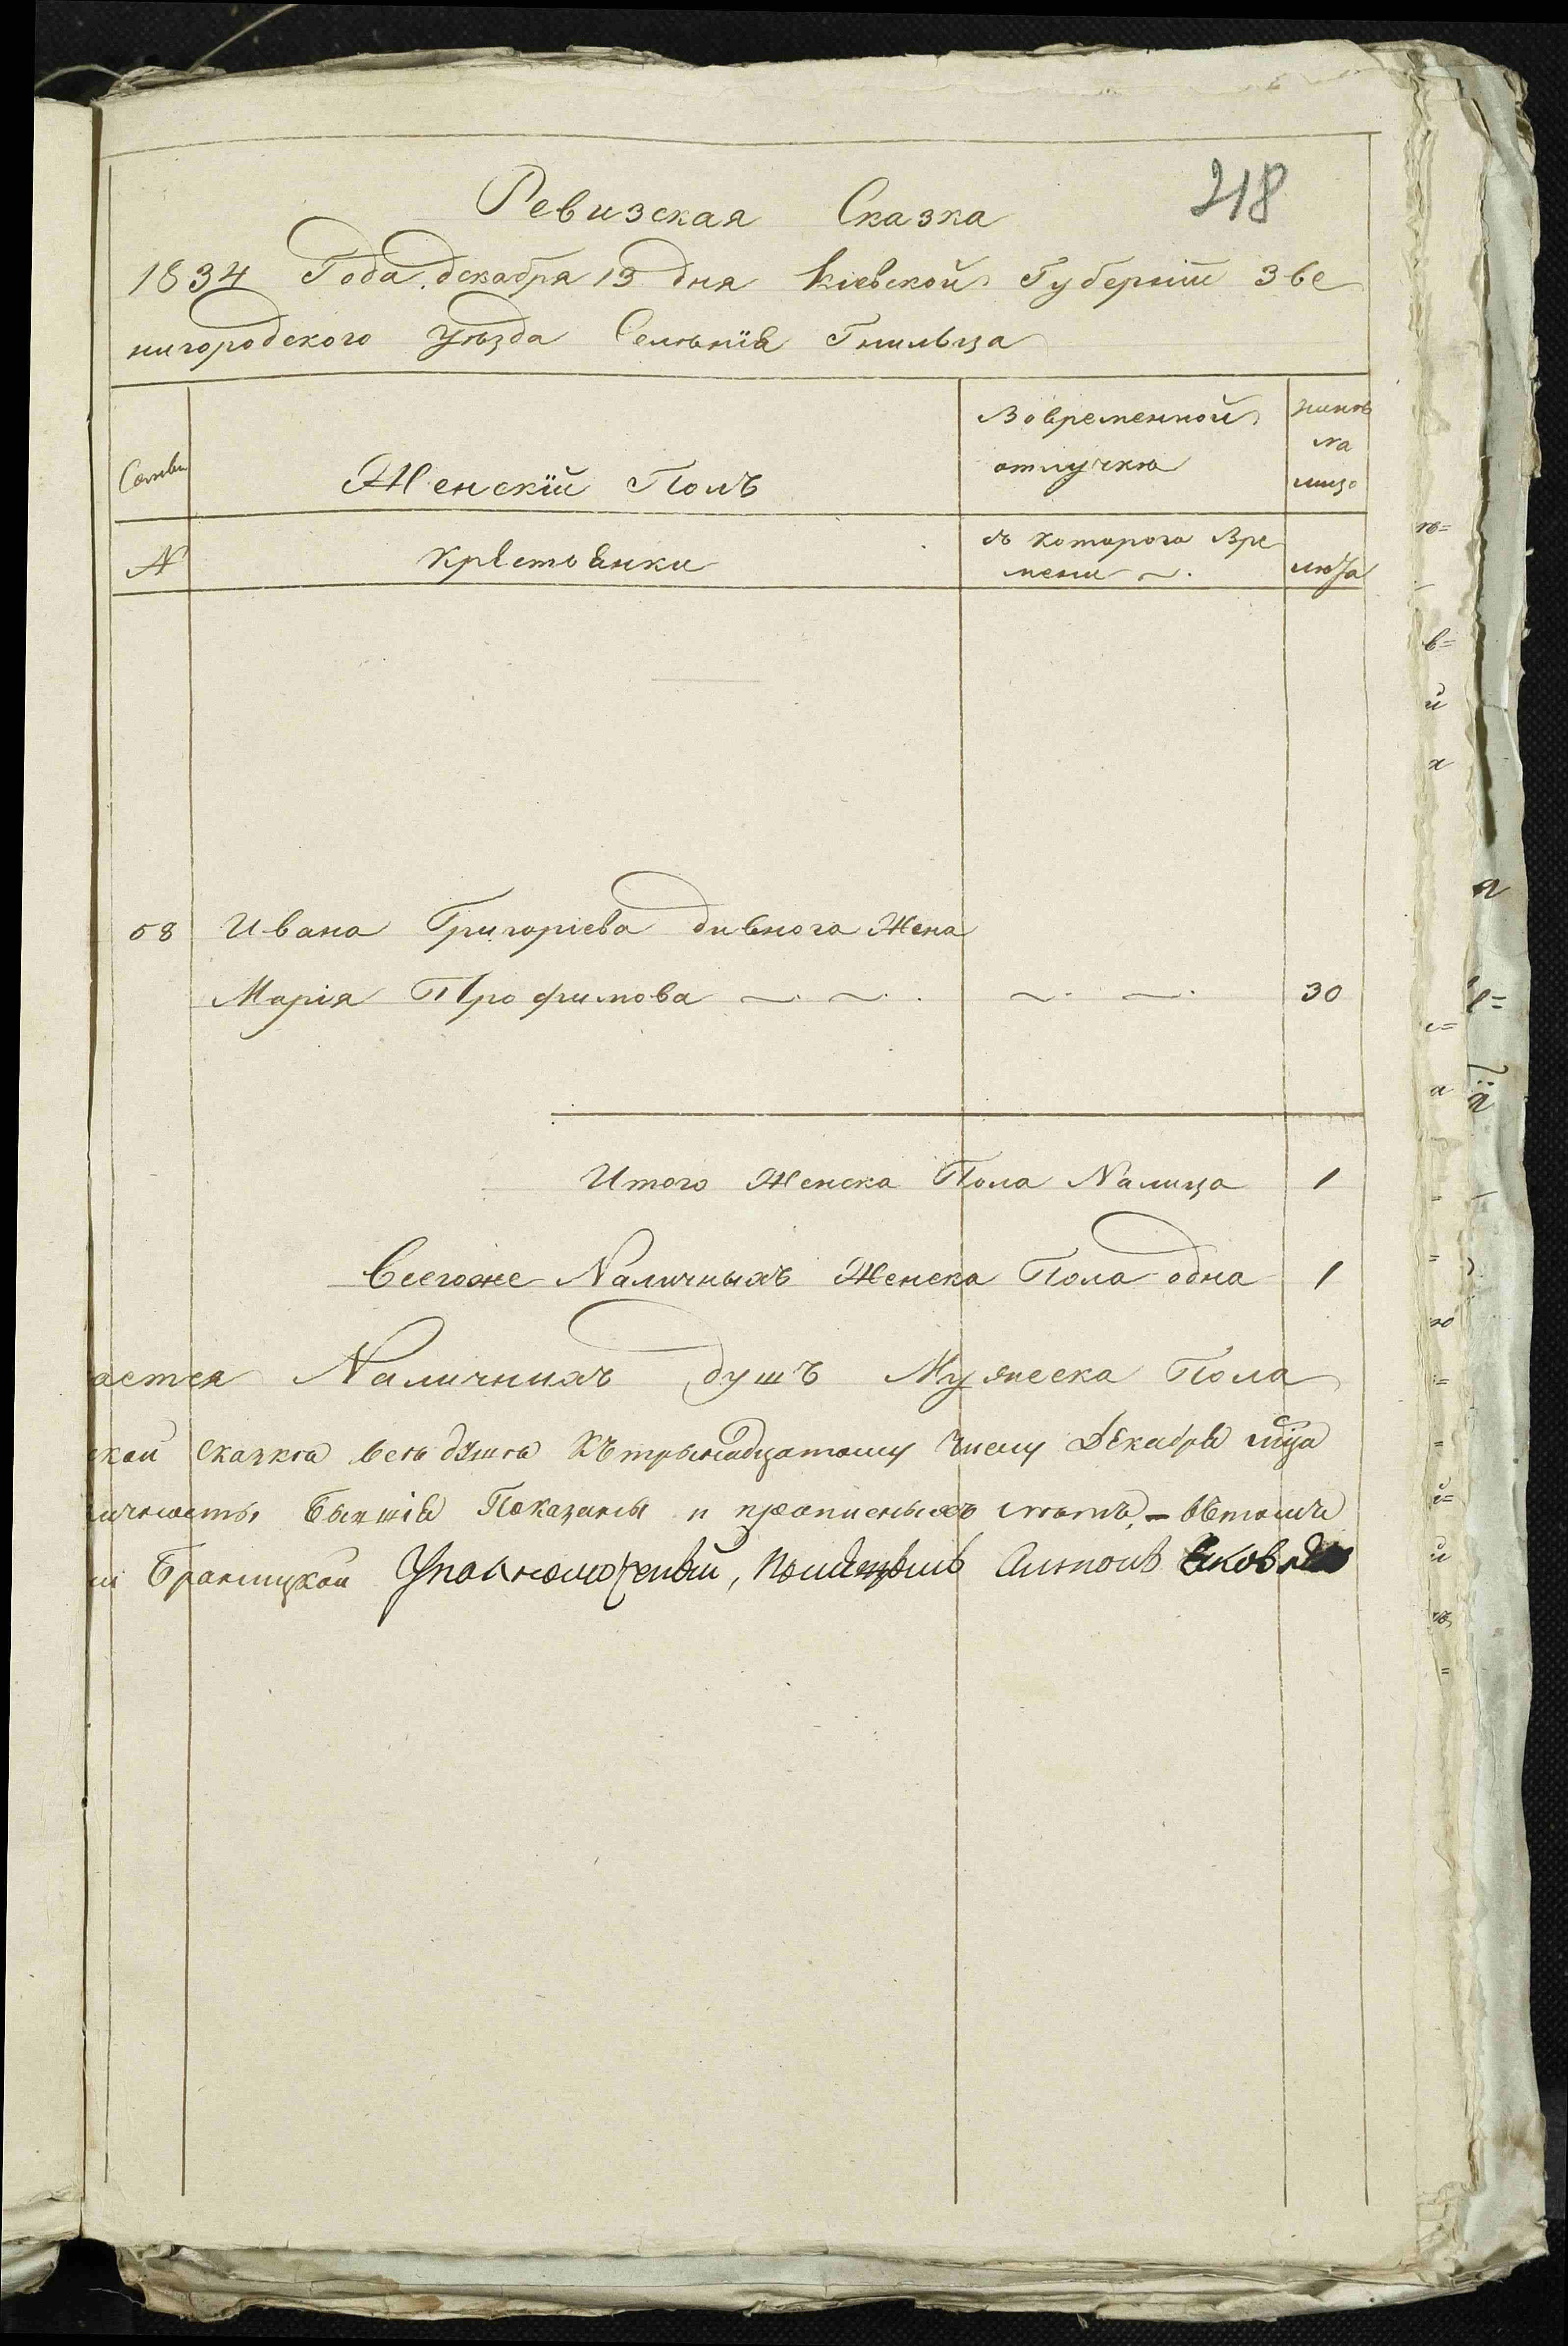 218
Ревизская Сказка
1834 Года. декабря 13 дня Кіевской Губерніи Зве
нигородского Уѣзда Селенія Гнильца
Семьи
Женскїй Полъ
Вовременной
отлучкѣ
нынѣ
на
лицо
N
Крестьянки
съ которого вре
мени
лѣта
58 Ивана Григоріева дивного Жена
Марія Трофимова 30
Итого Женска Пола Налицо 1
Всегоже Наличныхъ Женска Пола одна 1
ается Наличнихъ душъ Мужеска Пола
ской сказкѣ всѣ душѣ Къ трынадцатому числу Декабря мца
ичность бывшія Показаны и прописныхъ нѣтъ, - вѣтомъ
Браницкой Уполномоченый, Помещикъ Антонъ